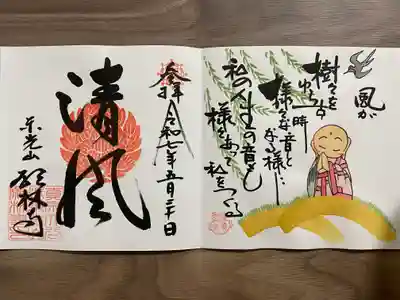 風が
樹々を
ゆらす時
様々な音と
なる様に…
私の人生の音も
様々あって
私をつくる
奉拝
令和七年五月二十日
清風
东光山
林寺